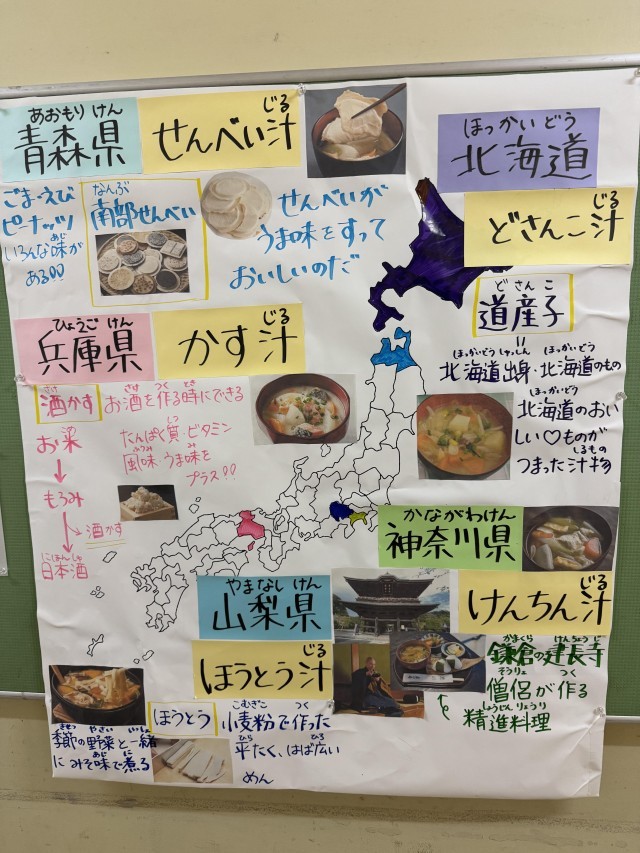 あおもり けん
青森県
じる
せんべい汁
ごま・えび
ピーナッツ
いろんな味があじ
ある!!
なんぶ
南部せんべい
せんべいが
うま味をすって
おいしいのだ
ほっかい どう
北海道
じる
どさんこ汁
ど さん こ
道産子
=
ほっかいどう しゅっしん ほっかいどう
北海道出身・北海道のもの
ほっかいどう
北海道のおい
しい♡ものが
しるもの
つまった汁物
ひょうご けん
兵庫県
じる
かす汁
さけ
酒かす
さけ つく とき
お酒を作る時にできる
しつ
たんぱく質・ビタミン
ふうみ み
風味・うま味を
プラス!!
お米
↓
もろみ
↓↘酒かす
にほんしゅ
日本酒
かながわけん
神奈川県
じる
けんちん汁
かまくら けんちょう じ
鎌倉の建長寺
そうりょ つく
僧侶が作る
しょうじん りょうり
精進料理
やまなし けん
山梨県
じる
ほうとう汁
ほうとう
こむぎこ つく
小麦粉で作った
ひら ひろ
平たく、はば広い
めん
きせつ やさい いっしょ
季節の野菜と一緒
あじ に
にみそ味で煮る